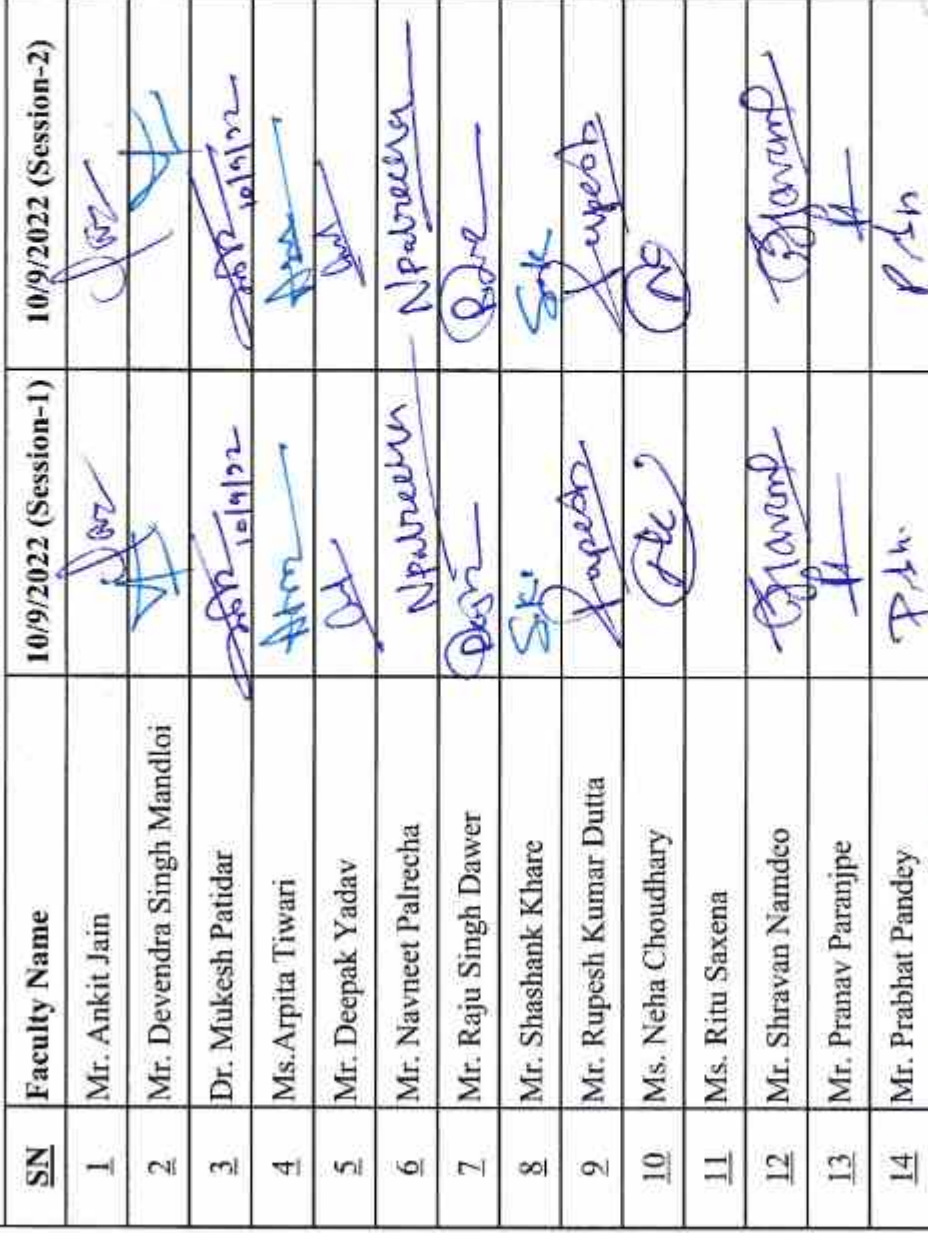 SN Faculty Name 10/9/2022 (Session-1) 10/9/2022 (Session-2)
1 Mr. Ankit Jain
2 Mr. Devendra Singh Mandloi
3 Dr. Mukesh Patidar 10/9/22 10/9/22
4 Ms.Arpita Tiwari
5 Mr. Deepak Yadav
6 Mr. Navneet Palrecha Npalrecha Npalrecha
7 Mr. Raju Singh Dawer
8 Mr. Shashank Khare S.K.
9 Mr. Rupesh Kumar Dutta Rupesh Rupesh
10 Ms. Neha Choudhary
11 Ms. Ritu Saxena
12 Mr. Shravan Namdeo
13 Mr. Pranav Paranjpe
14 Mr. Prabhat Pandey